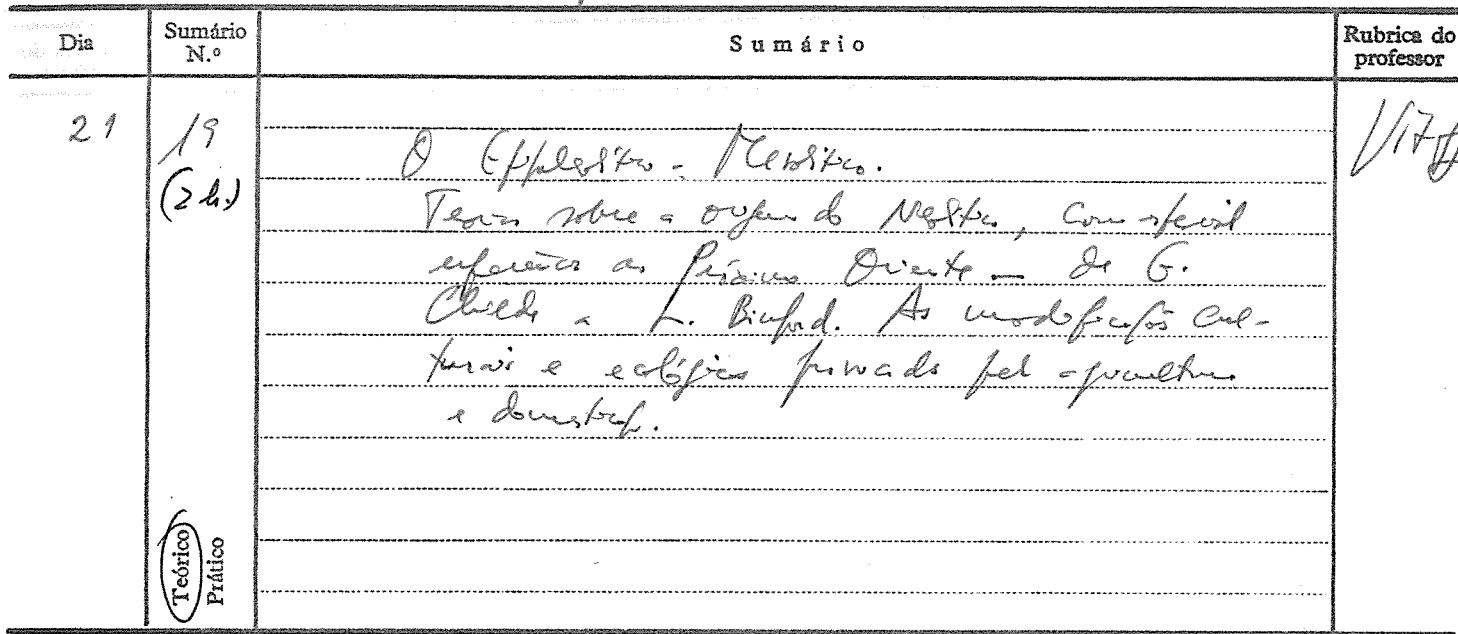 Dia
Sumário N.º
Sumário
Rubrica do professor
21
19
(2 h.)
O Epipaleolítico - Mesolítico.
Teorias sobre a origem do Neolítico, com especial
referência ao Próximo Oriente - de G.
Childe a L. Binford. As modificações cul-
turais e ecológicas provocadas pela agricultura
e domesticação.
Teórico
Prático